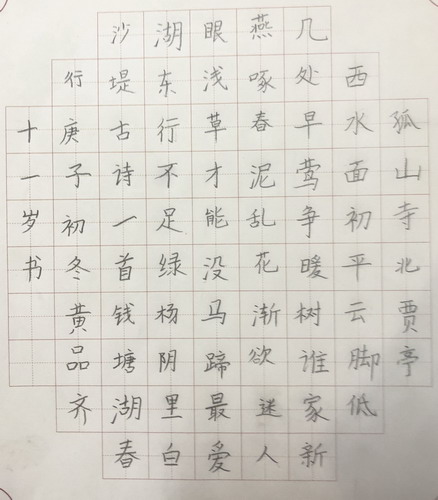 孤山寺北贾亭
西水面初平云脚低
几处早莺争暖树谁家新
燕啄春泥乱花渐欲迷人
眼浅草才能没马蹄最爱
湖东行不足绿杨阴里白
沙堤古诗一首钱塘湖春
行庚子初冬黄品齐
十一岁书